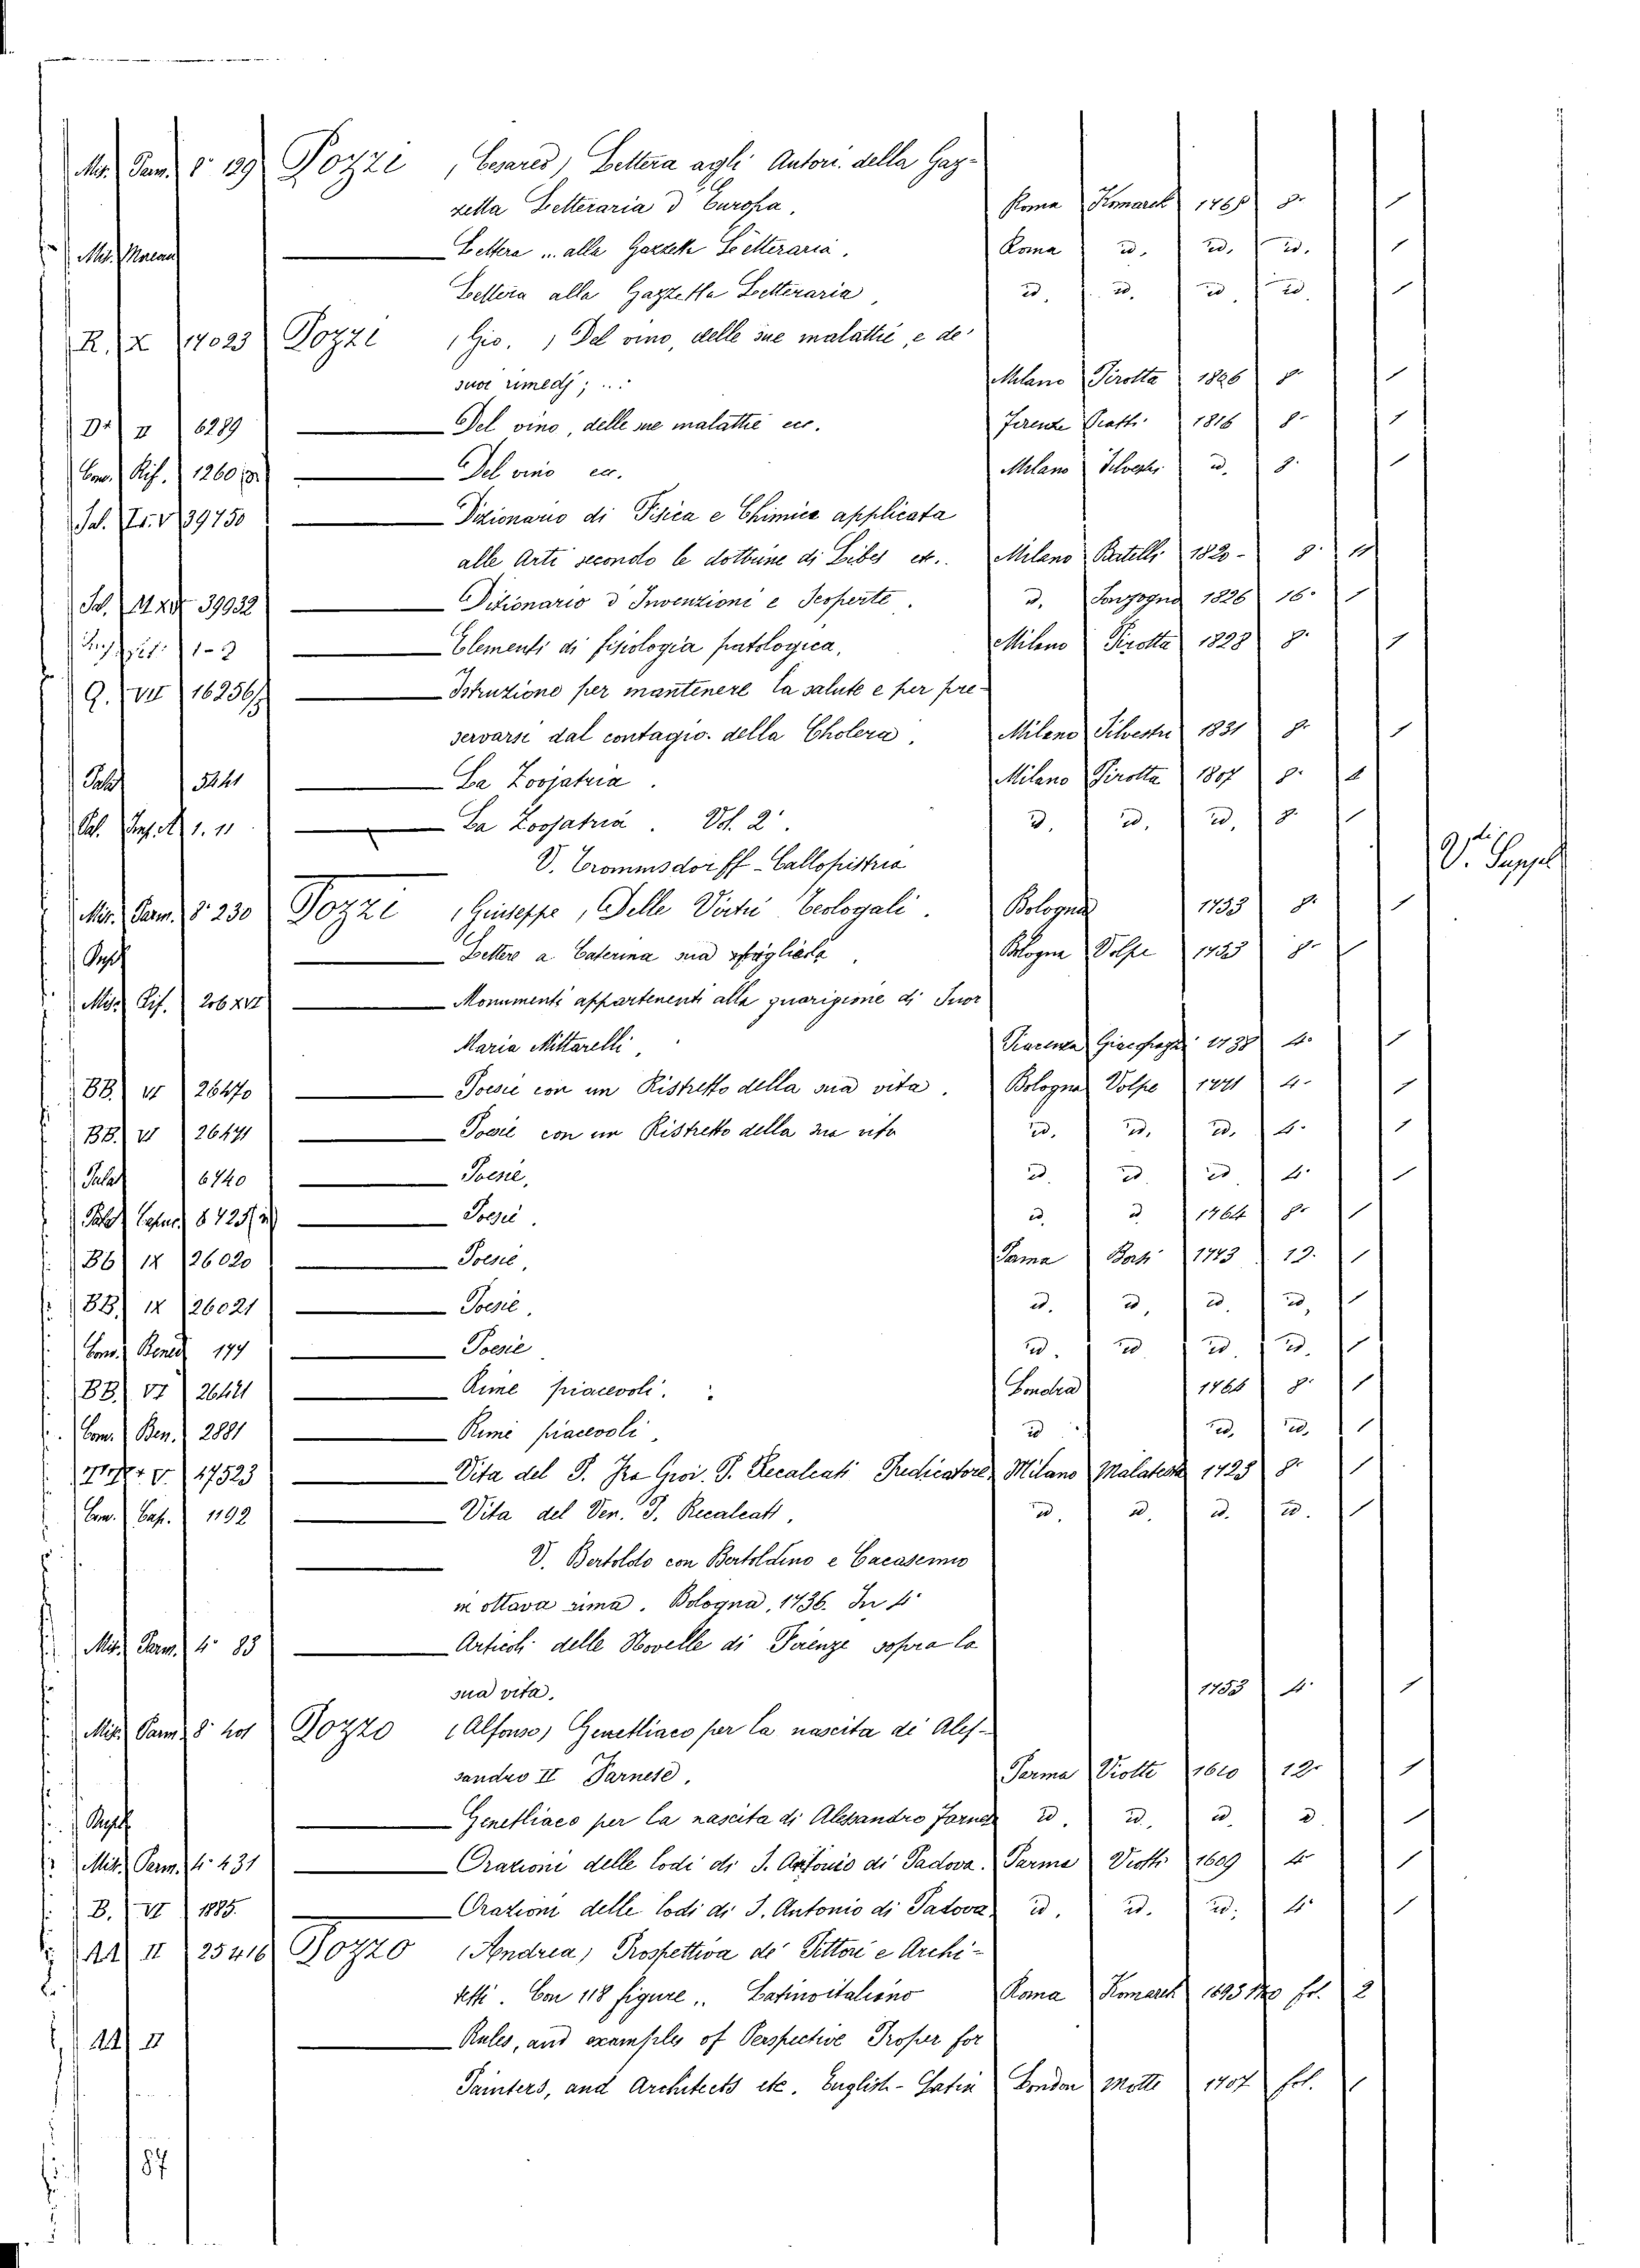 Mis. Parm. 8° 129 Pozzi , Cesareo) Lettera agli Autori della Gaz-
zetta Letteraria d'Europa. Roma Komarek 8° 1
Mis. Lettera ... alla Gazzetta Letteraria. Roma id. id. id. 1
Lettera alla Gazzetta Letteraria, id. id. id. id. 1
R. X 14023 Pozzi (Gio.) Del vino, delle sue malattie, e de'
suoi rimedj; ... Milano Pirotta 1826 8° 1
II 6289 — Del vino, delle sue malattie ecc. Firenze Piatti 1816 8° 1
Rif. 1260 — Del vino ec. Milano Silvestri id. 8° 1
Sal. 39750 — Dizionario di Fisica e Chimica applicata
alle Arti secondo le dottrine di Libes ec. Milano Batelli 1820- 8° 11
Sal. M 39932 — Dizionario d'Invenzioni e Scoperte. id. Sonzogno 1826 16° 1
1-2 — Elementi di fisiologia patologica. Milano Pirotta 1828 8° 1
Q. VII 16256 — Istruzione per mantenere la salute e per pre-
servarsi dal contagio della Cholera. Milano Silvestri 1831 8° 1
Palat 5241 — La Zoojatria. Milano Pirotta 1807 8°
1. 11 — La Zoojatria. Vol. 2°. id. id. id. 8° 1
V. Trommsdorff - Callopistria V. Suppl.
Mis. Parm. 8° 230 Pozzi (Giuseppe) Delle Virtù Teologali. Bologna 1733 8° 1
— Lettere a Caterina sua figliola. Bologna Volpe 8° 1
Misc. Rif. 206 XVI — Monumenti appartenenti alla guarigione di Suor
Maria Mittarelli, 1738 4° 1
BB. VI 26470 — Poesie con un Ristretto della sua vita. Bologna Volpe 4° 1
BB. VI 26471 — Poesie con un Ristretto della sua vita id. id. id. 4° 1
Palat 6740 — Poesie, id. id. id. 4° 1
Palat — Poesie. id. id. 1764 8° 1
BB. IX 26020 — Poesie, Parma 1743 12° 1
BB. IX 26021 — Poesie. id. id. id. id. 1
Com. Bened. — Poesie id. id. id. id. 1
BB. VI — Rime piacevoli. Londra 8° 1
Com. Ben. 2881 — Rime piacevoli. id. id. id. 1
V. 17523 — Vita del P. Fra Giov. P. Recalcati Predicatore, Milano Malatesta 8° 1
Com. Cap. 1192 — Vita del Ven. P. Recalcati, id. id. id. id. 1
— V. Bertoldo con Bertoldino e Cacasenno
in ottava rima. Bologna, 1736. In 4°
Mis. Parm. 4° 83 — Articoli delle Novelle di Firenze sopra la
sua vita. 1753 4° 1
Mis. Parm. 8° Pozzo (Alfonso) Genetliaco per la nascita di Ales-
sandro II Farnese, Parma Viotti 1610 12° 1
— Genetliaco per la nascita di Alessandro Farnese id. id. id. id. 1
Mis. Parm. 4° 431 — Orazioni delle lodi di S. Antonio di Padova. Parma Viotti 1609 4° 1
B. VI 1885. — Orazioni delle lodi di S. Antonio di Padova id. id. id. 4° 1
AA II 25416 Pozzo (Andrea) Prospettiva de' Pittori e Archi-
tetti. Con 118 figure. Latinoitaliano Roma Komarek fol. 2
AA II — Rules, and examples of Perspective Proper for
Painters, and Architects etc. English-Latin London Motte 1707 fol. 1
87